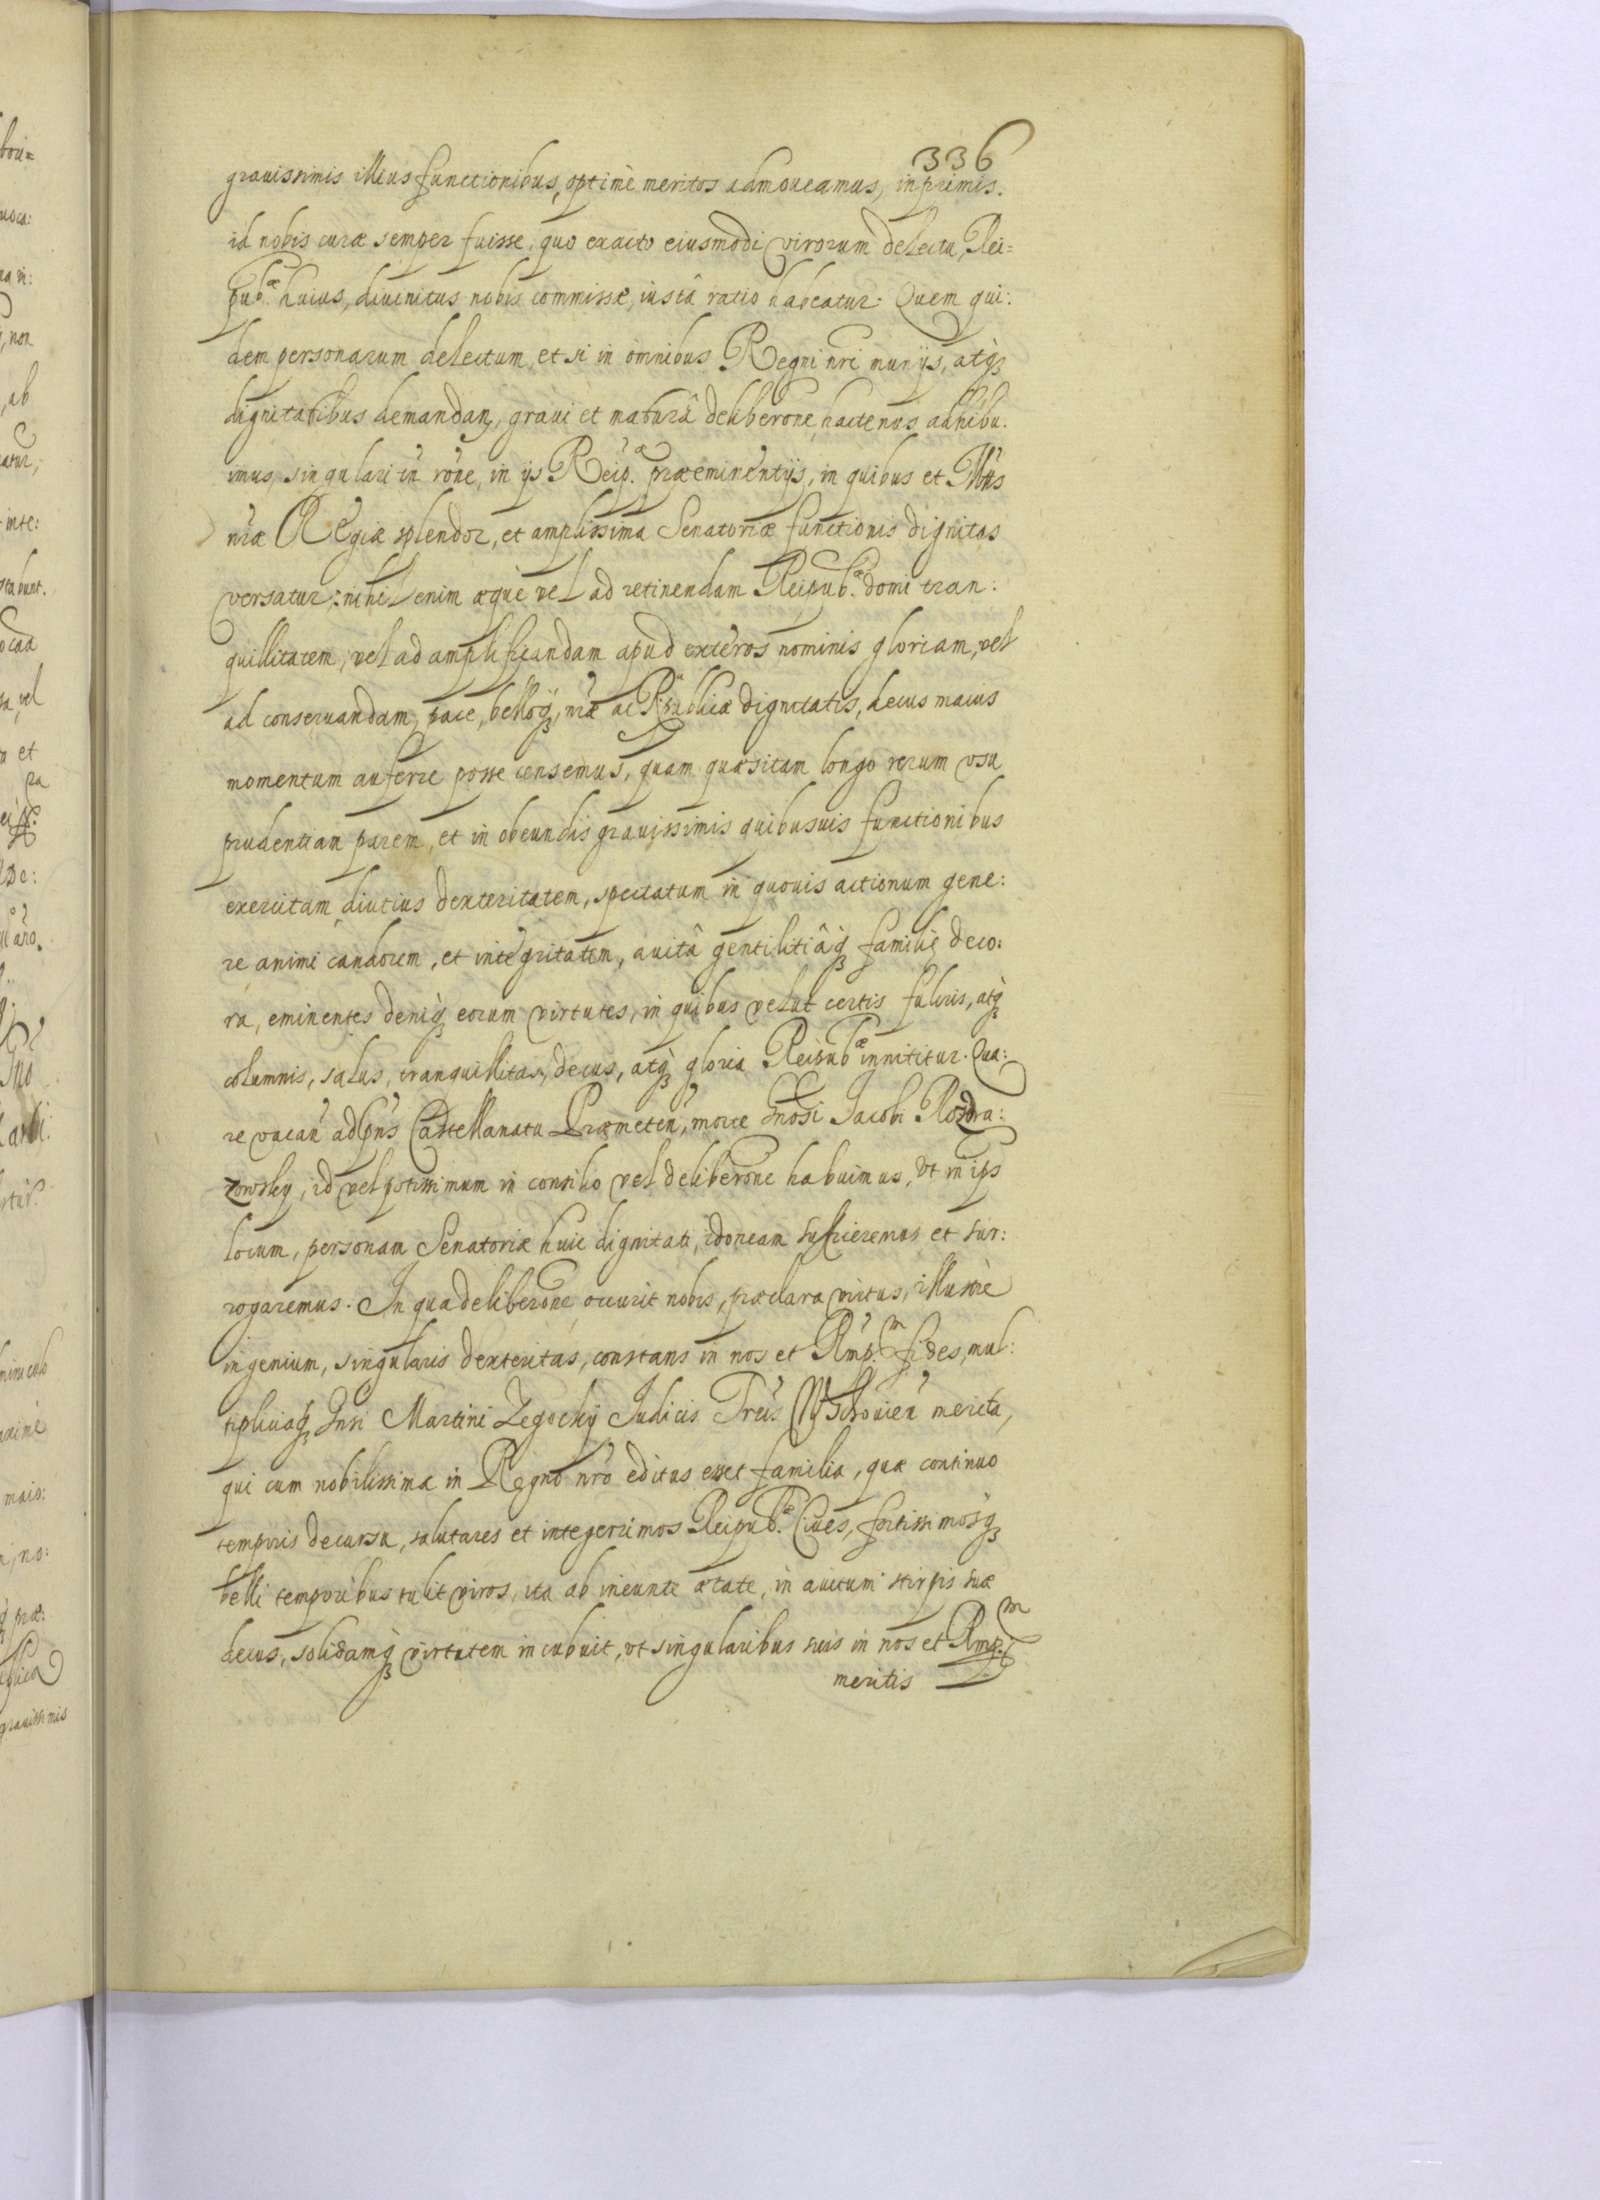 336
grauissimis illius functionibus, optimè meritos admoueamus, inprimis.
id nobis curæ semper fuisse, quo exacto eiusmodi virorum delectu, Rei=
pub.æ huius, diuinitus nobis commissæ, iusta ratio habeatur. Quem qui:
dem personarum delectum, et si in omnibus Regni nri munijs, atq3
dignitatibus demandan, graui et maturâ deliberone hactenus adhibu:
imus, singulari tn rone, in ijs Reip.æ præeminentijs, in quibus et
nræ Regiæ splendor, et amplissima Senatoriæ functionis dignitas
versatur: nihil enim æquè vel ad retinendam Reipub.æ domi tran:
quillitatem, vel ad amplificandam apud exteros nominis gloriam, vel
ad conseruandam, pace, belloq3, nræ ac Rpublicæ dignitatis, decus maius
momentum auferre posse censemus, quam quæsitam longo rerum vsu
prudentiam parem, et in obeundis grauissimis quibusuis functionibus
exercitam diutius dexteritatem, spectatum in quouis actionum gene:
re animi candorem, et integritatem, auita gentilitiâq3 familiæ deco:
ra, eminentes deniq3 eorum virtutes, in quibus velut certis fulcris, atq3
columnis, salus, tranquillitas, decus, atq3 gloria Reipub.æ innititur. Qua:
re vacan ad pns Castellanatu Præmeten, morte Gnosi Jacobi Rozdra:
zowsky, id vel potissimum in consilio vel deliberone habuimus, vt in ips
locum, personam Senatoriæ huic dignitati, idoneam sufficeremus et sur:
rogaremus. In qua deliberone occurit nobis, præclara virtus, illustre
ingenium, singularis dexteritas, constans in nos et Rmp.m fides, mul:
tipliciaq3 Gnsi Martini Zegocky Judicis Tris Wschouien merita,
qui cum nobilissima in Regno nro editus esset familia, quæ continuo
temporis decursu, salutares et integerrimos Reipub.æ Ciues, fortissimosq3
belli temporibus tulit viros, ita ab ineunte ætate, in auitum stirpis suæ
decus, solidamq3 virtutem incubuit, vt singularibus suis in nos et Rmp.m
meritis